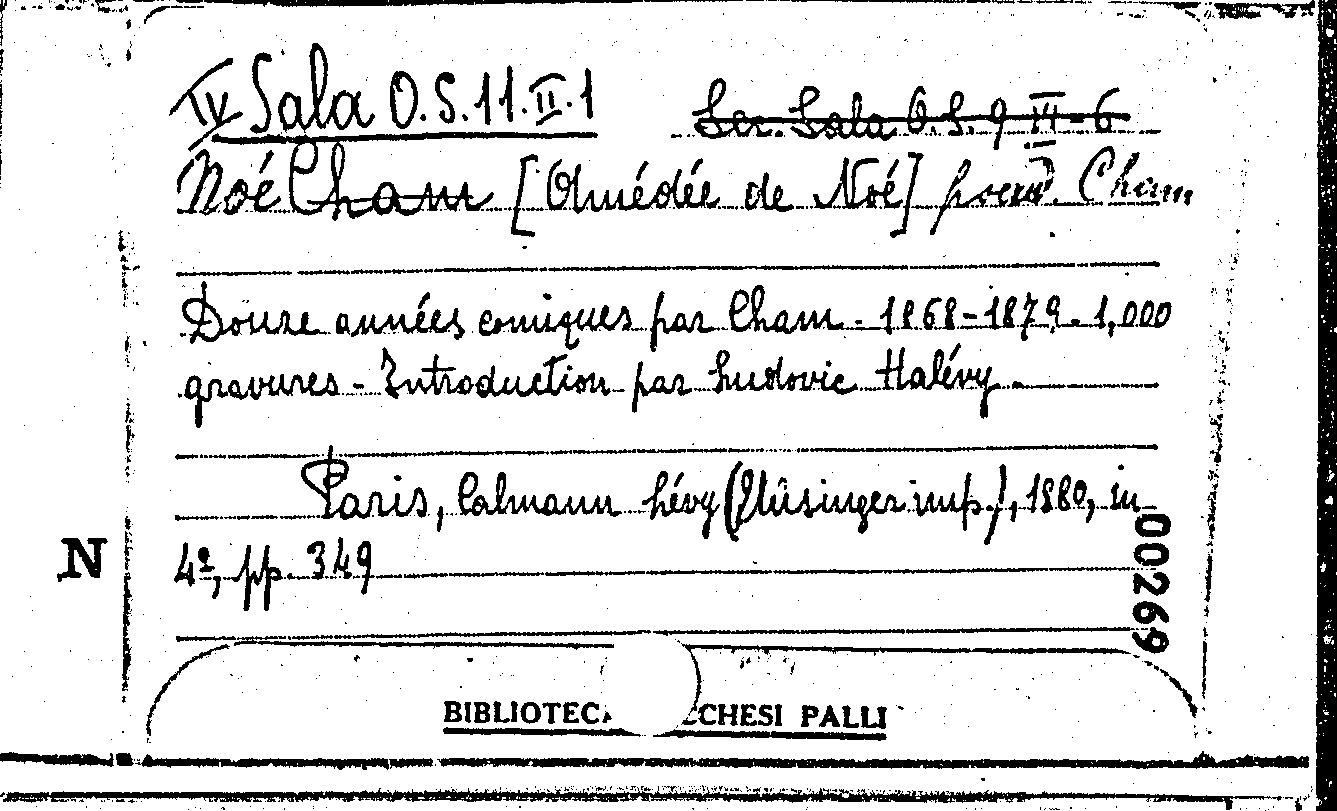 IV Sala O.S.11.II.1 Scr. Sala O.S. 9 III-6
Noé Cham [Amédée de Noé] pseud. Cham
Douze années comiques par Cham - 1868-1879 - 1,000
gravures - Introduction par Ludovic Halévy -
Paris, Calmann Lévy (Plüsinger imp.), 1880, in
4º, pp. 349
N
00269
BIBLIOTECA CCHESI PALLI